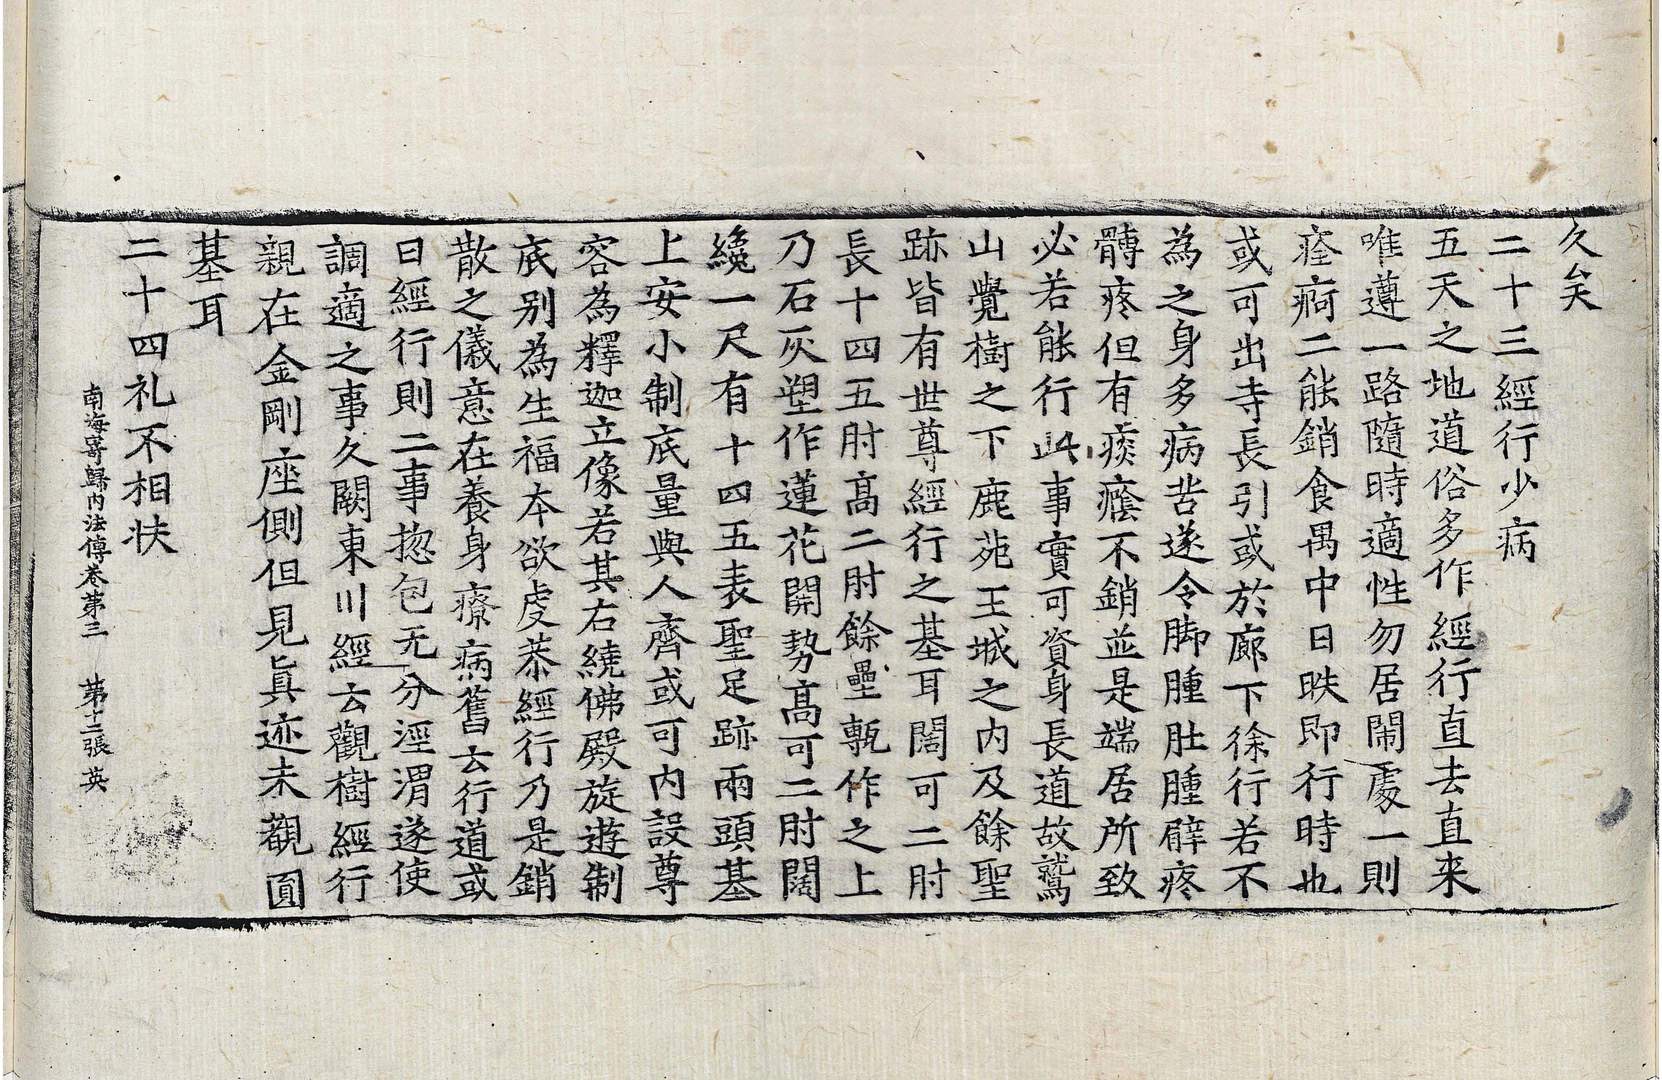 久矣
二十三經行少病
五天之地道俗多作經行直去直来
唯遵一路隨時適性勿居閙處一則
痊痾二能銷食禺中日昳即行時也
或可出寺長引或於廊下徐行若不
為之身多病苦遂令脚腫肚腫臂疼
髆疼但有痰癊不銷並是端居所致
必若能行此事實可資身長道故鷲
山覺樹之下鹿苑王城之内及餘聖
跡皆有世尊經行之基耳闊可二肘
長十四五肘高二肘餘壘甎作之上
乃石灰塑作蓮花開勢高可二肘闊
纔一尺有十四五表聖足跡兩頭基
上安小制底量與人齊或可内設尊
容為釋迦立像若其右繞佛殿旋遊制
底别為生福本欲虔恭經行乃是銷
散之儀意在養身療病舊云行道或
曰經行則二事揔包无分涇渭遂使
調適之事久闕東川經云觀樹經行
親在金剛座側但見真迹未觀圓
基耳
二十四礼不相扶
南海寄歸内法傳卷第三　第十二張　英